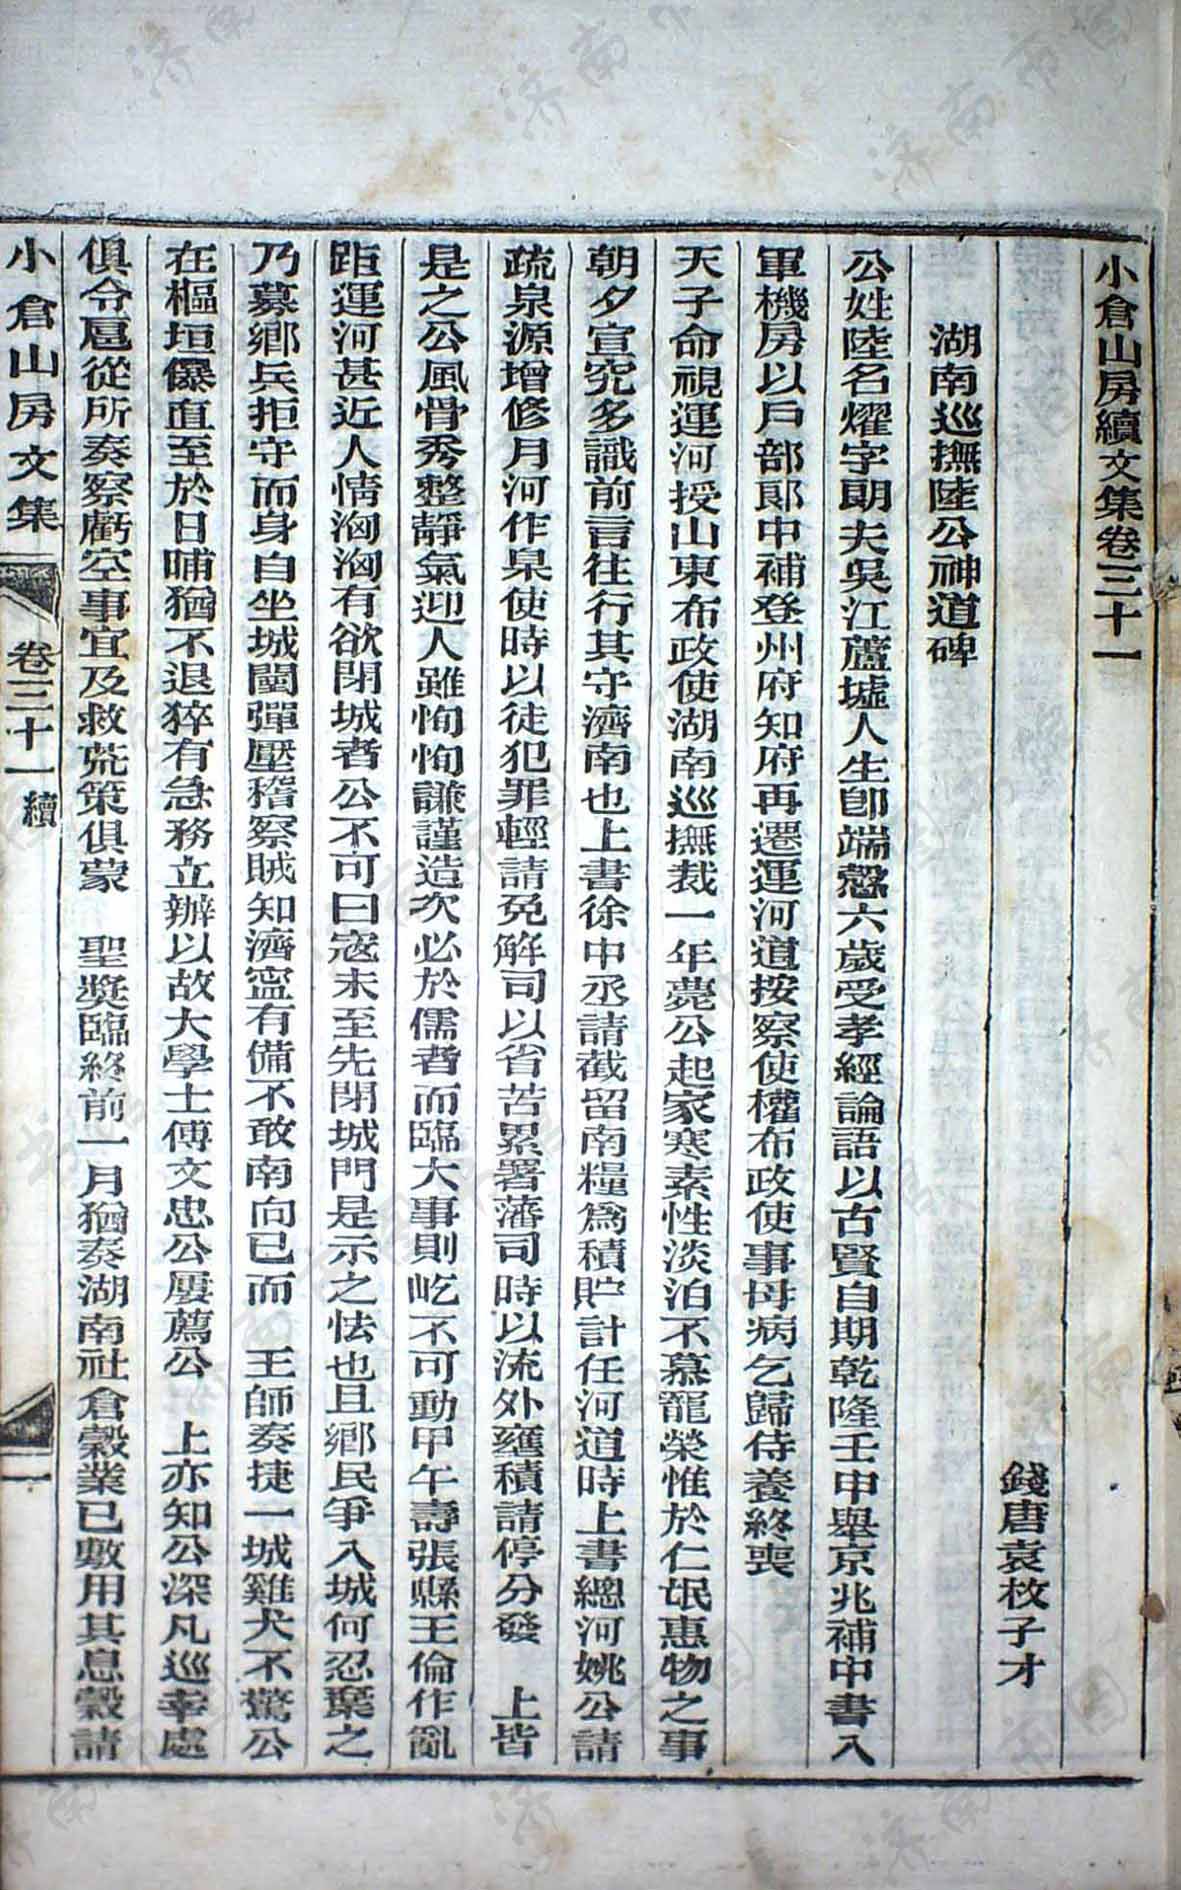 小倉山房續文集卷三十一
錢唐袁枚子才
湖南巡撫陸公神道碑
公姓陸名燿字朗夫吳江蘆墟人生卽端慤六歲受孝經論語以古賢自期乾隆壬申舉京兆補中書入
軍機房以戶部郎中補登州府知府再遷運河道按察使權布政使事母病乞歸侍養終喪
天子命視運河授山東布政使湖南巡撫裁一年薨公起家寒素性淡泊不慕寵榮惟於仁氓惠物之事
朝夕宣究多識前言往行其守濟南也上書徐中丞請截留南糧爲積貯計任河道時上書總河姚公請
疏泉源增修月河作臬使時以徒犯罪輕請免解司以省苦累署藩司時以流外壅積請停分發　上皆
是之公風骨秀整靜氣迎人雖恂恂謙謹造次必於儒者而臨大事則屹不可動甲午壽張縣王倫作亂
距運河甚近人情洶洶有欲閉城者公不可曰寇未至先閉城門是示之怯也且鄉民爭入城何忍棄之
乃募鄉兵拒守而身自坐城闉彈壓稽察賊知濟寧有備不敢南向已而　王師奏捷一城雞犬不驚公
在樞垣儤直至於日晡猶不退猝有急務立辦以故大學士傅文忠公屢薦公　上亦知公深凡巡幸處
俱令扈從所奏察虧空事宜及救荒策俱蒙　聖獎臨終前一月猶奏湖南社倉穀業已敷用其息穀請
小倉山房文集　卷三十一續　一